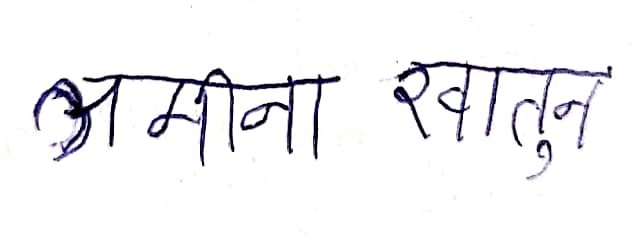 अमीना खातुन